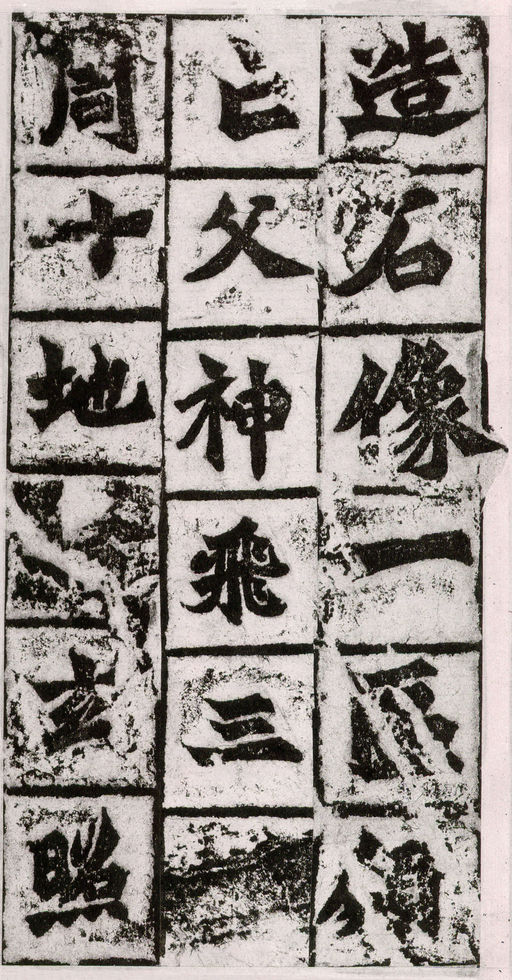 造石像一
亡父神飛三
周十地玄照